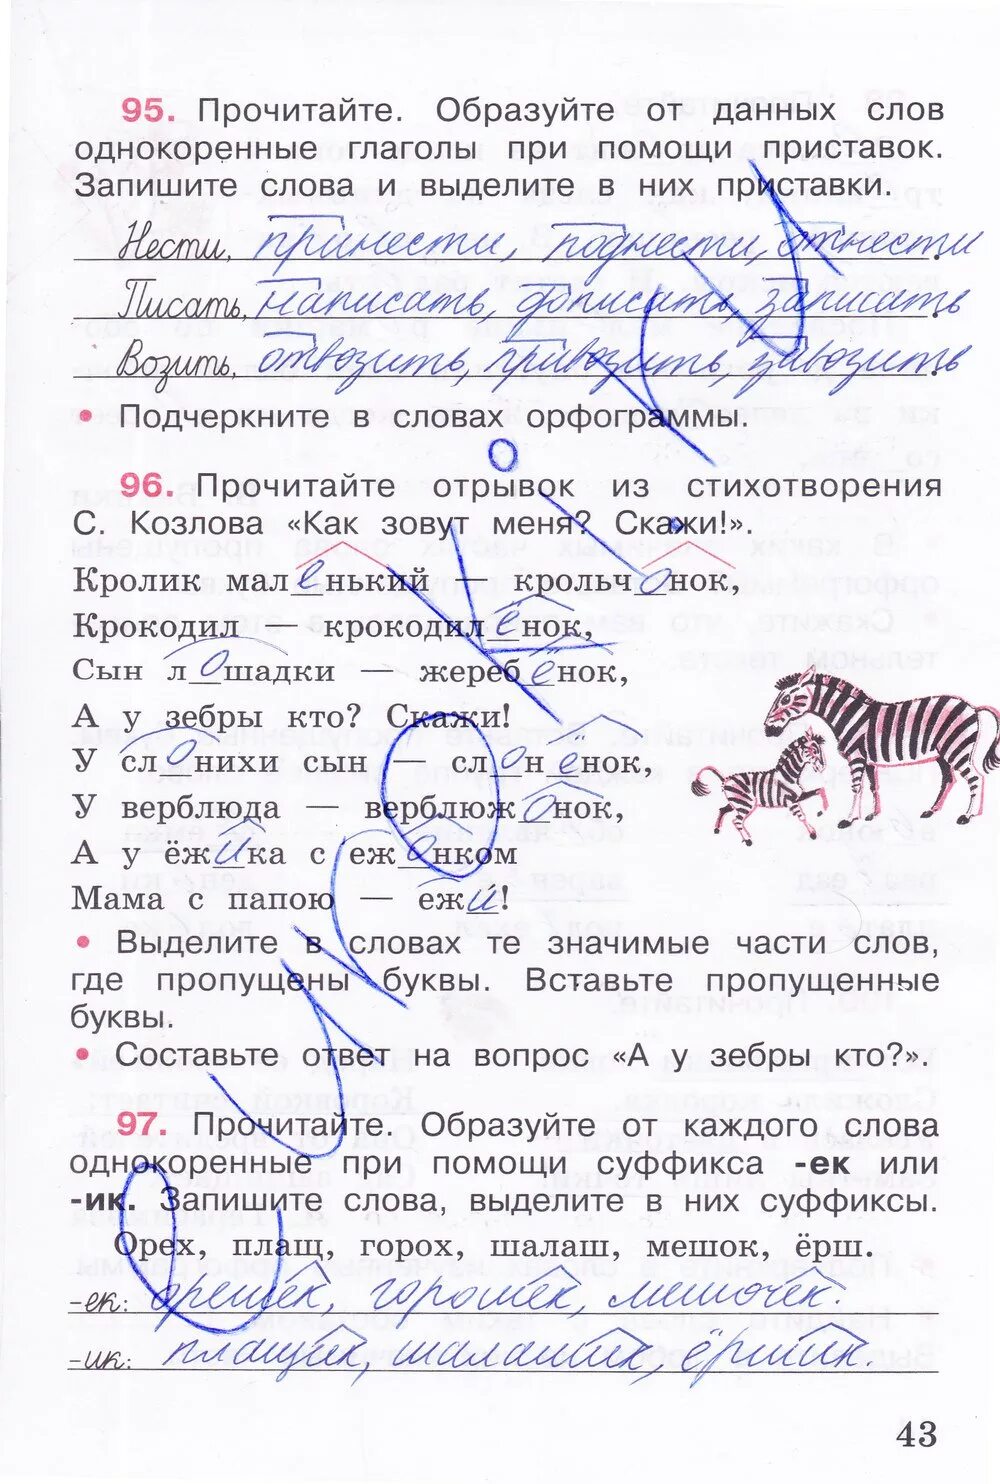 95. Прочитайте. Образуйте от данных слов
однокоренные глаголы при помощи приставок.
Запишите слова и выделите в них приставки.
Нести, принести, поднести, отнести
Писать, написать, дописать, записать.
Возить, отвозить, привозить, завозить.
• Подчеркните в словах орфограммы.
96. Прочитайте отрывок из стихотворения
С. Козлова «Как зовут меня? Скажи!».
Кролик маленький — крольчонок,
Крокодил — крокодилёнок,
Сын лошадки — жеребёнок,
А у зебры кто? Скажи!
У слонихи сын — слонёнок,
У верблюда — верблюжонок,
А у ёжика с ежонком
Мама с папою — ежи!
• Выделите в словах те значимые части слов,
где пропущены буквы. Вставьте пропущенные
буквы.
• Составьте ответ на вопрос «А у зебры кто?».
97. Прочитайте. Образуйте от каждого слова
однокоренные при помощи суффикса -ек или
-ик. Запишите слова, выделите в них суффиксы.
Орех, плащ, горох, шалаш, мешок, ёрш.
-ек: орешек, горошек, мешочек.
-ик: плащик, шалашик, ёршик.
43